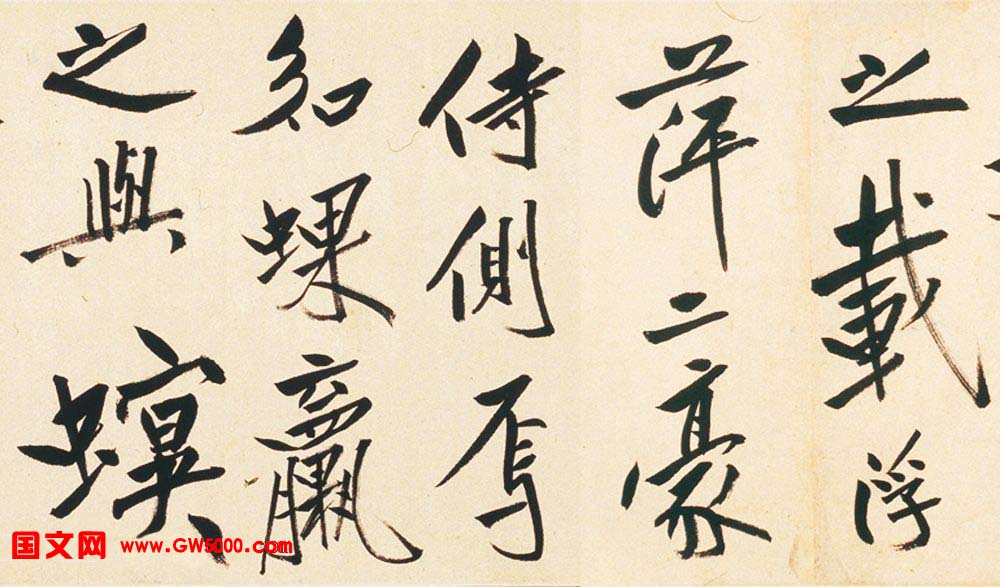 之載浮
萍二豪
侍側焉
如蜾蠃
之與螟
国文网 www.GW5000.com